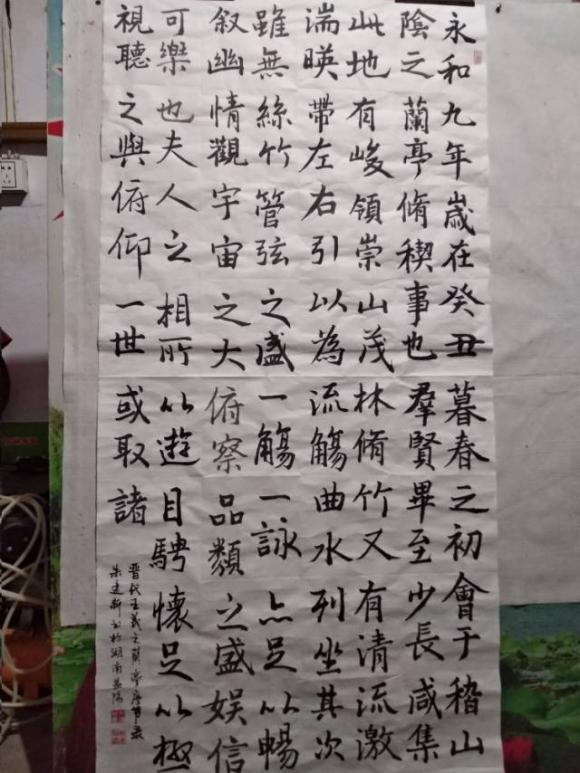 永和九年歲在癸丑暮春之初會于稽山
陰之蘭亭脩稧事也羣賢畢至少長咸集
此地有峻領崇山茂林脩竹又有清流激
湍暎帶左右引以為流觴曲水列坐其次
雖無絲竹管弦之盛一觴一詠亦足以暢
叙幽情觀宇宙之大俯察品類之盛娱信
可樂也夫人之相所以遊目騁懷足以極
視聽之與俯仰一世或取諸
晋代王羲之蘭亭序節录
朱建新书於湖南益陽